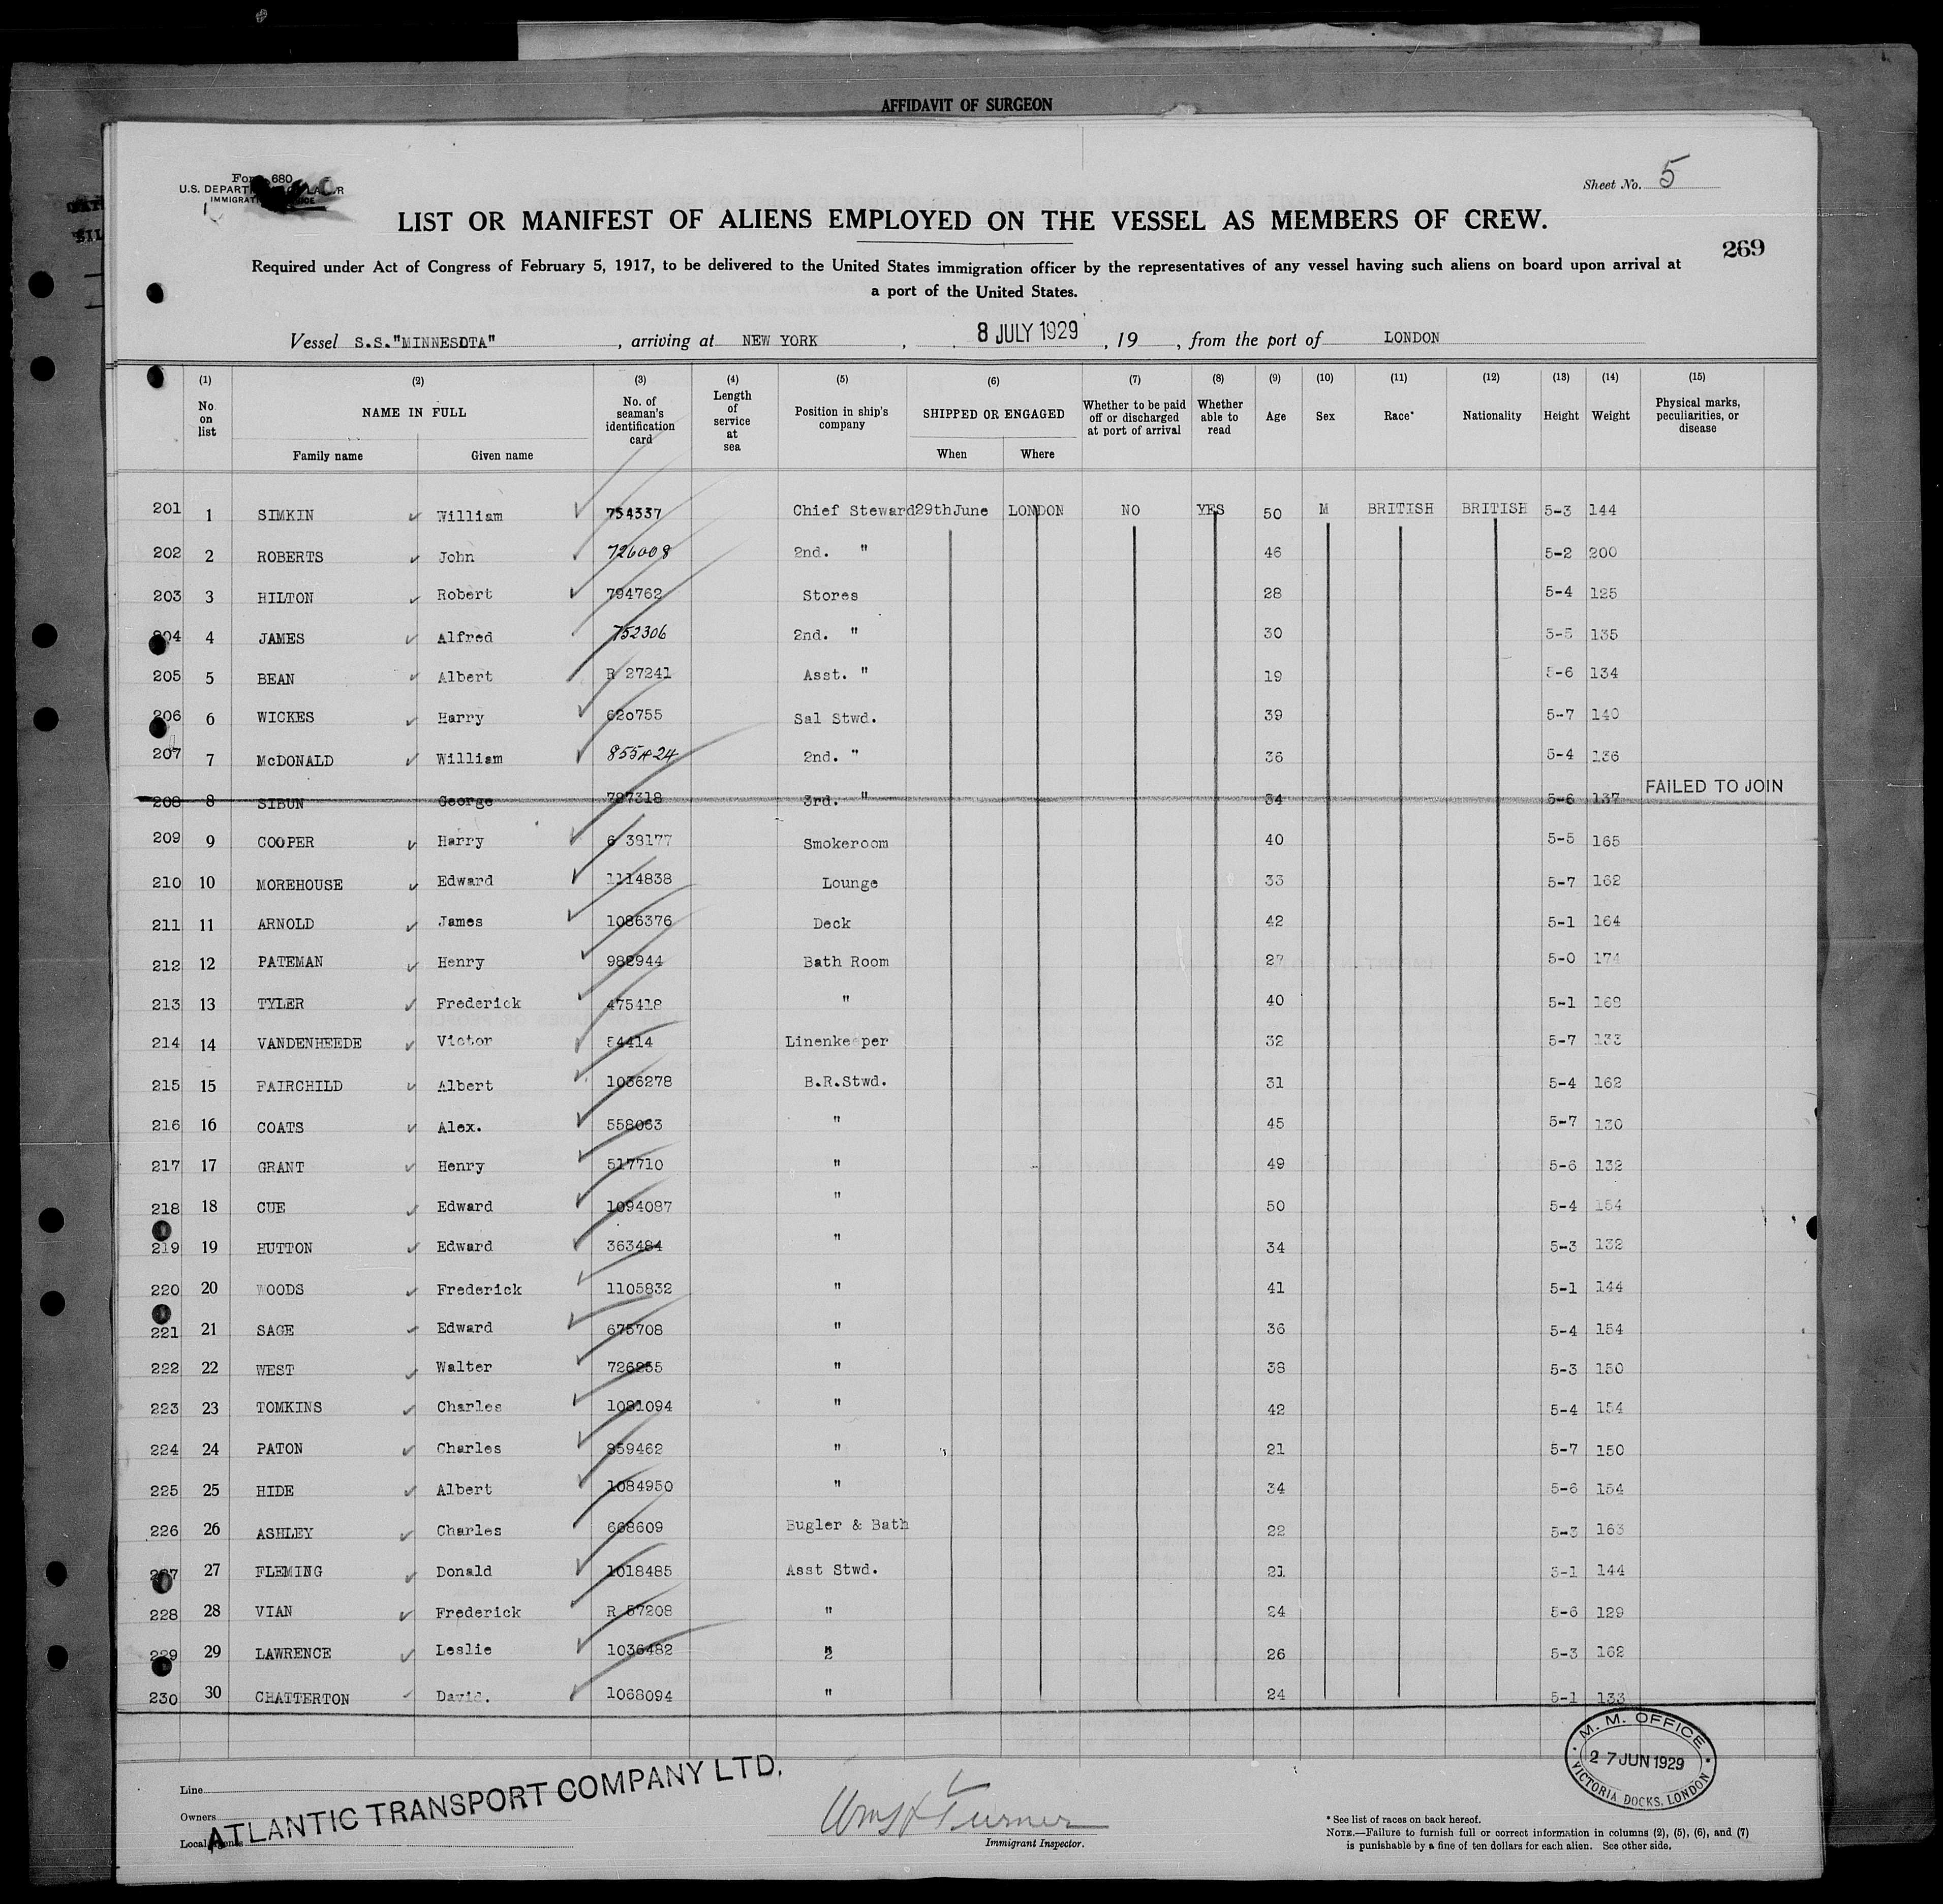 AFFIDAVIT OF SURGEON
Form 680
U.S. DEPARTMENT OF LABOR
IMMIGRATION SERVICE
Sheet No. 5
LIST OR MANIFEST OF ALIENS EMPLOYED ON THE VESSEL AS MEMBERS OF CREW.
269
Required under Act of Congress of February 5, 1917, to be delivered to the United States immigration officer by the representatives of any vessel having such aliens on board upon arrival at
a port of the United States.
Vessel S.S."MINNESOTA" , arriving at NEW YORK , 8 JULY 1929 , 19 , from the port of LONDON
(1) (2) (3) (4) (5) (6) (7) (8) (9) (10) (11) (12) (13) (14) (15)
No. on list NAME IN FULL No. of seaman's identification card Length of service at sea Position in ship's company SHIPPED OR ENGAGED Whether to be paid off or discharged at port of arrival Whether able to read Age Sex Race* Nationality Height Weight Physical marks, peculiarities, or disease
Family name Given name When Where
201 1 SIMKIN William 754337 Chief Steward 29thJune LONDON NO YES 50 M BRITISH BRITISH 5-3 144
202 2 ROBERTS John 726008 2nd. " 46 5-2 200
203 3 HILTON Robert 794762 Stores 28 5-4 125
204 4 JAMES Alfred 752306 2nd. " 30 5-5 135
205 5 BEAN Albert R 27241 Asst. " 19 5-6 134
206 6 WICKES Harry 620755 Sal Stwd. 39 5-7 140
207 7 McDONALD William 855424 2nd. " 36 5-4 136
208 8 SIBUN George 787318 3rd. " 34 5-6 137 FAILED TO JOIN
209 9 COOPER Harry 6 38177 Smokeroom 40 5-5 165
210 10 MOREHOUSE Edward 1114838 Lounge 33 5-7 162
211 11 ARNOLD James 1086376 Deck 42 5-1 164
212 12 PATEMAN Henry 982944 Bath Room 27 5-0 174
213 13 TYLER Frederick 475418 " 40 5-1 162
214 14 VANDENHEEDE Victor 54414 Linenkeeper 32 5-7 133
215 15 FAIRCHILD Albert 1036278 B.R.Stwd. 31 5-4 162
216 16 COATS Alex. 558063 " 45 5-7 130
217 17 GRANT Henry 517710 " 49 5-6 132
218 18 CUE Edward 1094087 " 50 5-4 154
219 19 HUTTON Edward 363484 " 34 5-3 132
220 20 WOODS Frederick 1105832 " 41 5-1 144
221 21 SAGE Edward 675708 " 36 5-4 154
222 22 WEST Walter 726255 " 38 5-3 150
223 23 TOMKINS Charles 1081094 " 42 5-4 154
224 24 PATON Charles 859462 " 21 5-7 150
225 25 HIDE Albert 1084950 " 34 5-6 154
226 26 ASHLEY Charles 668609 Bugler & Bath 22 5-3 163
227 27 FLEMING Donald 1018485 Asst Stwd. 21 5-1 144
228 28 VIAN Frederick R 57208 " 24 5-6 129
229 29 LAWRENCE Leslie 1036482 " 26 5-3 162
230 30 CHATTERTON David. 1068094 " 24 5-1 133
M. M. OFFICE
27 JUN 1929
VICTORIA DOCKS, LONDON
Line
Owners
Local Agents
ATLANTIC TRANSPORT COMPANY LTD.
Turner
Immigrant Inspector.
* See list of races on back hereof.
NOTE.—Failure to furnish full or correct information in columns (2), (5), (6), and (7)
is punishable by a fine of ten dollars for each alien. See other side.